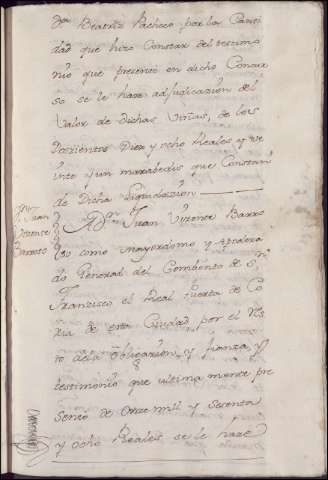 Dña Beatriz Pacheco por la Canti
dad que hizo Constar del testimo
nio que presento en dicho Concur
so se le haze adjudicazion del
Valor de dichas Viñas, de los
Dozientos Diez y ocho Reales y ve
inte y un maravedis que Constan
de Dicha liquidazion
Dn. Juan
Vizente
Barroso
A Dn. Juan Vizente Barro
so como mayordomo y apodera
do General del Combento de Sn.
Francisco el Real Puerta de Co
ria de esta Ciudad por el Res
to de la obligazion y fianza y
testimonio que ultimamente pre
sento de Onze mil y Sesenta
y ocho Reales se le haze